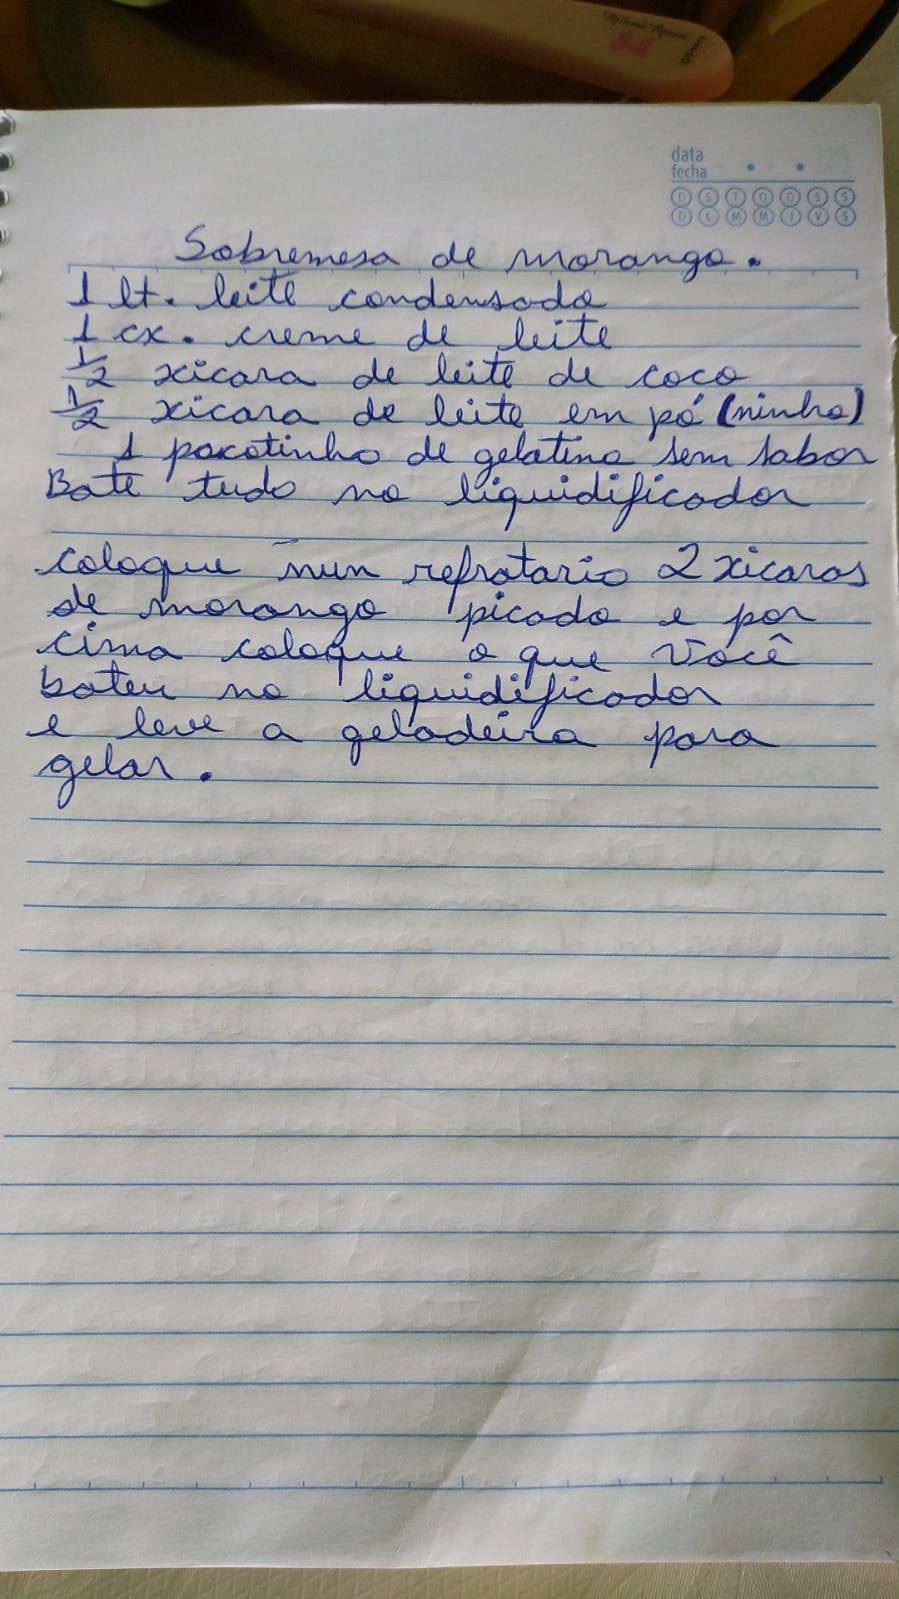 data
fecha
D S T Q Q S S
D L M M J V S
Sobremesa de morango.
1 lt. leite condensado
1 cx. creme de leite
1/2 xicara de leite de coco
1/2 xicara de leite em pó (ninho)
1 pacotinho de gelatina sem sabor
Bate tudo no liquidificador
coloque num refratario 2 xicaras
de morango picado e por
cima coloque o que você
bateu no liquidificador
e leve a geladeira para
gelar.